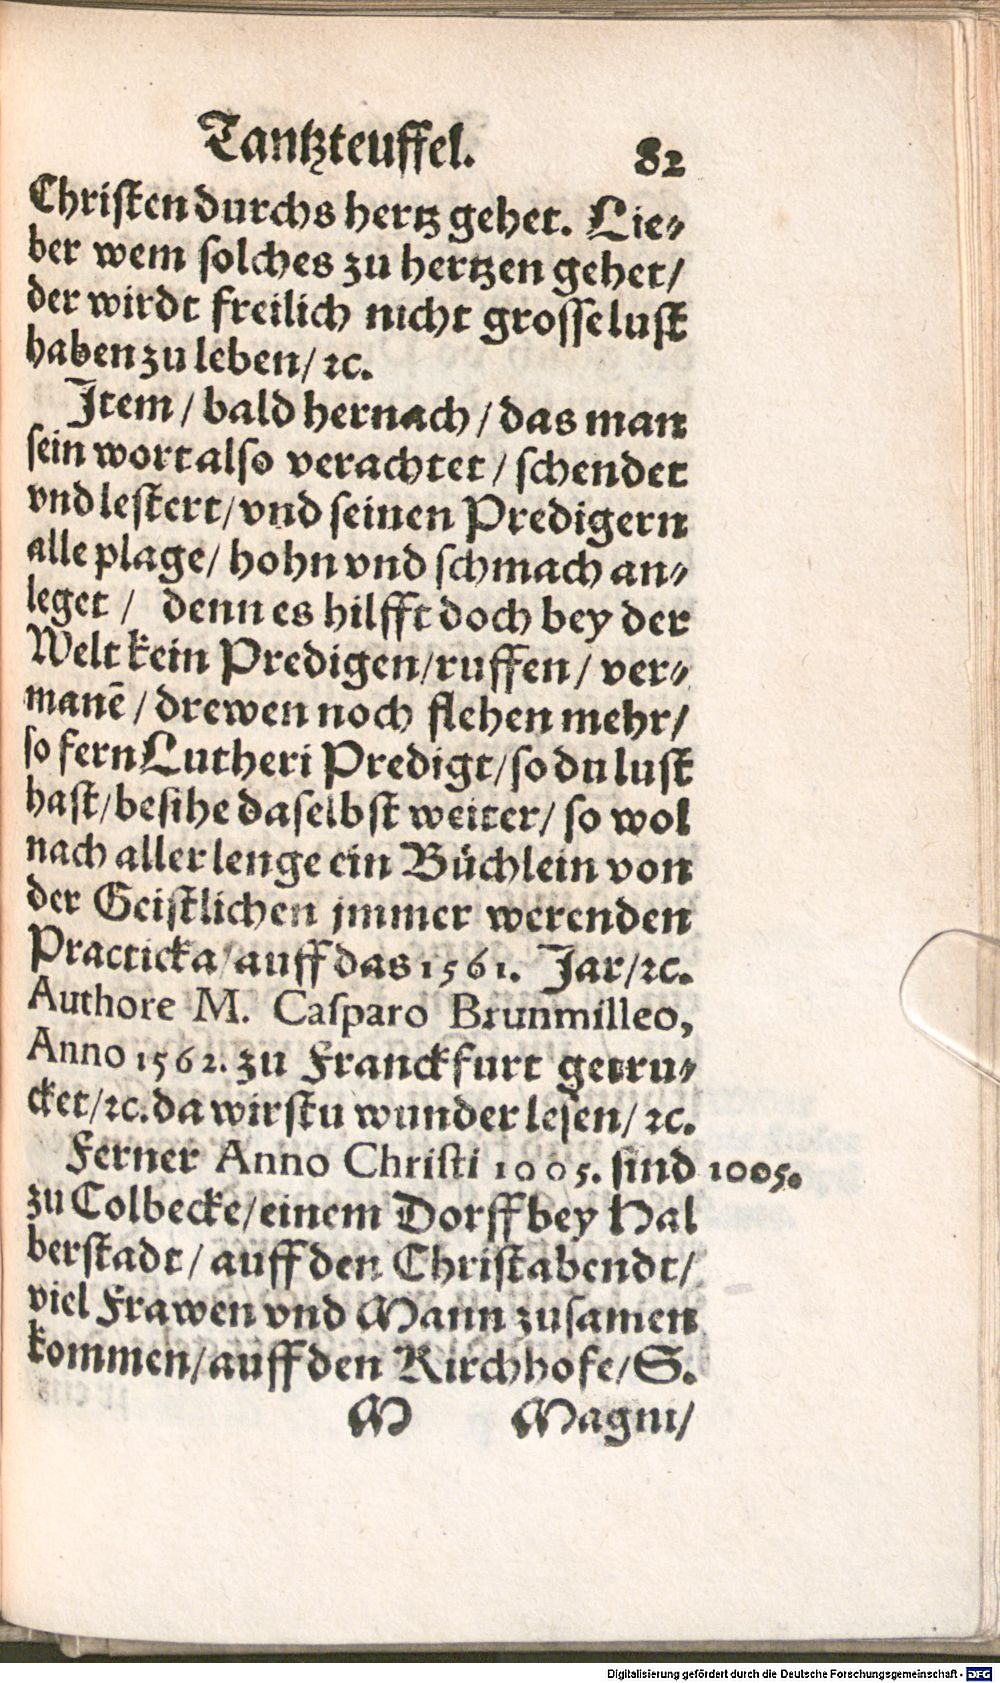 Tantzteuffel. 82
Christen durchs hertz gehet. Lie⸗
ber wem solches zu hertzen gehet/
der wirdt freilich nicht grosse lust
haben zu leben/ ꝛc.
Item/ bald hernach/ das man
sein wort also verachtet/ schendet
vnd lestert/ vnd seinen Predigern
alle plage/ hohn vnd schmach an⸗
leget/ denn es hilfft doch bey der
Welt kein Predigen/ ruffen/ ver⸗
manē/ drewen noch flehen mehr/
so fern Lutheri Predigt/ so du lust
hast/ besihe daselbst weiter/ so wol
nach aller lenge ein Büchlein von
der Geistlichen jmmer werenden
Practicka/ auff das 1561. Jar/ ꝛc.
Authore M. Casparo Brunmilleo,
Anno 1562. zu Franckfurt getru⸗
cket/ ꝛc. da wirstu wunder lesen/ ꝛc.
Ferner Anno Christi 1005. sind 1005.
zu Colbecke/ einem Dorff bey Hal
berstadt/ auff den Christabendt/
viel Frawen vnd Mann zusamen
kommen/ auff den Kirchhofe/ S.
M Magni/
Digitalisierung gefördert durch die Deutsche Forschungsgemeinschaft - DFG